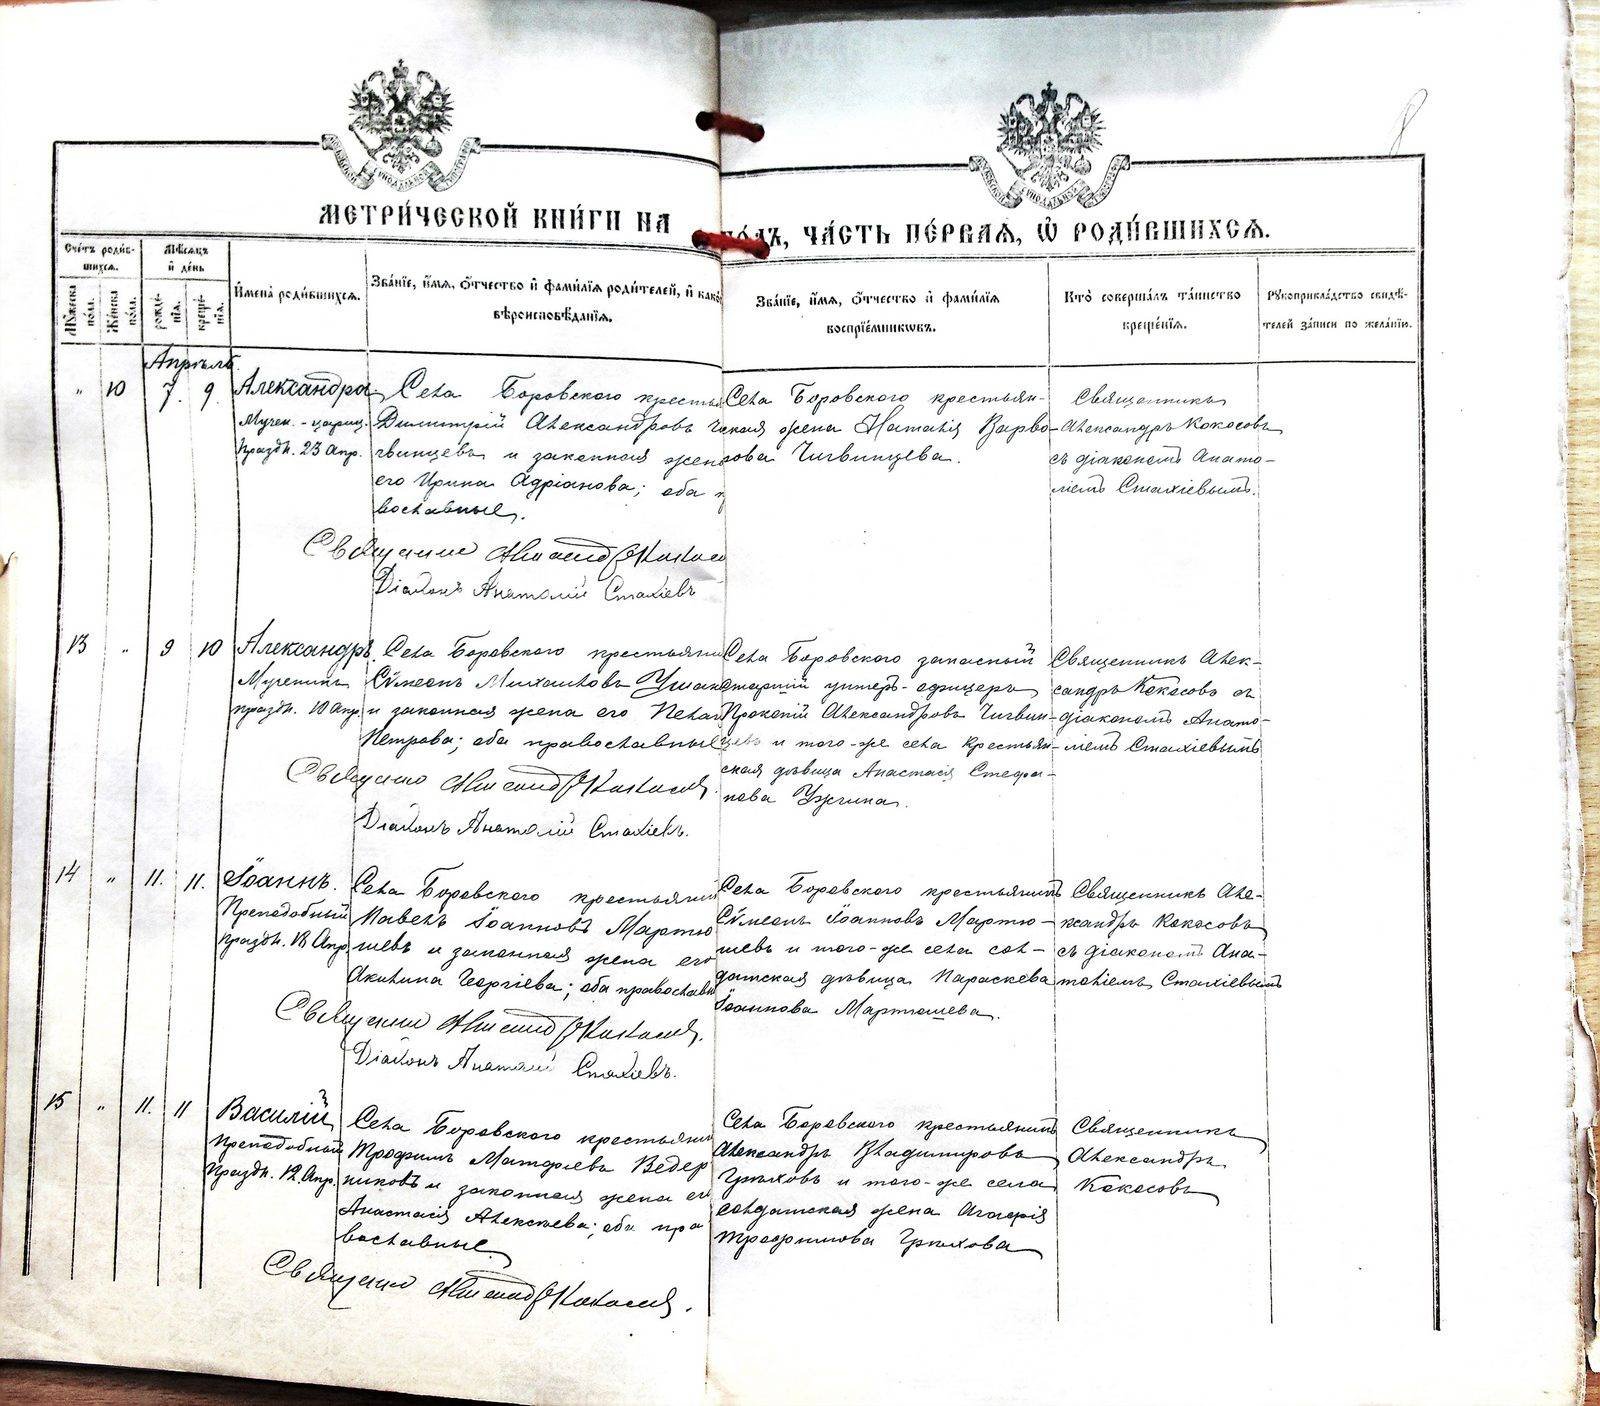 8
МЕТРИ́ЧЕСКОЙ КНИ́ГИ НА
го́дъ, ЧА́СТЬ ПЕ́РВАЯ, Ѽ РОДИ́ВШИХСЯ.
Сче́тъ роди́в-
шихся.
Му́жеска по́ла.
Же́нска по́ла.
Мѣ́сяцъ
и҆ де́нь
рожде́нїя.
креще́нїя.
И҆мена̀ роди́вшихся.
Зва́нїе, и҆́мя, ѻ҆́тчество и҆ фами́лїя роди́телей, и҆ како́
вѣроисповѣ́данїя.
Зва́нїе, и҆́мя, ѻ҆́тчество и҆ фами́лїя
воспрїе́мниковъ.
Кто̀ соверша́лъ та́инство
креще́нїя.
Рꙋкоприкла́дство свидѣ́-
телей за́писи по жела́нїю.
Апрѣль
„ 10 7. 9.
Александра
Мучен. - цариц.
Праздн. 23 Апр.
Села Боровского крестья
Димитрій Александровъ Чи
гвинцевъ и законная жена
его Ирина Адріанова; оба п
вославные.
Священникъ Александръ Кокосо
Діаконъ Анатолій Стахіевъ
Села Боровского крестьян-
ская жена Наталія Варво-
рова Чигвинцева.
Священникъ
Александръ Кокосовъ
съ діакономъ Анато-
ліемъ Стахіевымъ.
13 „ 9 10
Александръ.
Мученикъ
праздн. 10 Апр.
Села Боровского крестьяни
Сѵмеонъ Михаиловъ Ушак
и законная жена его Пелаг
Петрова; оба православные
Священникъ Александръ Кокосовъ.
Діаконъ Анатолій Стахіевъ.
Села Боровского запасный
старшій унтеръ-офицеръ
Прокопій Александровъ Чигвин-
цевъ и того-же села крестьян-
ская дѣвица Анастасія Стефа-
нова Ужгина.
Священникъ Алек-
сандръ Кокосовъ съ
діакономъ Анато-
ліемъ Стахіевымъ
14 „ 11. 11.
Іоаннъ.
Преподобный
праздн. 18 Апр.
Села Боровского крестьяни
Павелъ Іоанновъ Мартю
шевъ и законная жена его
Акилина Георгіева; оба православн
Священникъ Александръ Кокосовъ.
Діаконъ Анатолій Стахіевъ.
Села Боровского крестьянинъ
Сѵмеонъ Іоанновъ Мартю-
шевъ и того-же села сол-
датская дѣвица Параскева
Іоаннова Мартюшева.
Священникъ Але-
ксандръ Кокосовъ
съ діакономъ Ана-
толіемъ Стахіевымъ
15 „ 11. 11
Василій
Преподобный
Праздн. 12 Апр.
Села Боровского крестьянин
Трофимъ Матѳіевъ Ведер
никовъ и законная жена ег
Анастасія Алексѣева; оба пра
вославные.
Священникъ Александръ Кокосовъ.
Села Боровского крестьянинъ
Александръ Владимировъ
Грѣховъ и того-же села
солдатская жена Агафія
Трофимова Грѣхова
Священникъ
Александръ
Кокосовъ